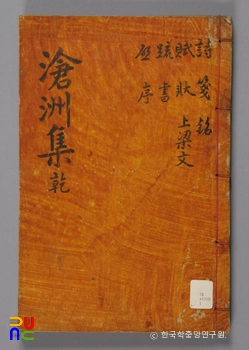 詩 箋 銘
賦 狀 上梁文
疏 書
啓 序
滄洲集 乾
© 한국학중앙연구원